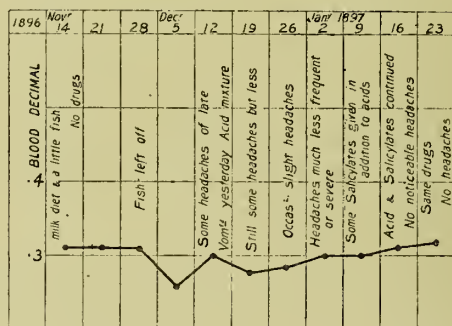 1896 Novr Decr Jany 1897
14 21 28 5 12 19 26 2 9 16 23
BLOOD DECIMAL
.4
.3
milk diet & a little fish
No drugs
Fish left off
Some headaches of late
Vomtd yesterday Acid mixture
Still some headaches but less
Occasl slight headaches
Headaches much less frequent
or severe
Some Salicylates given in
addition to acids
Acid & Salicylates continued
No noticeable headaches
Same drugs
No headaches